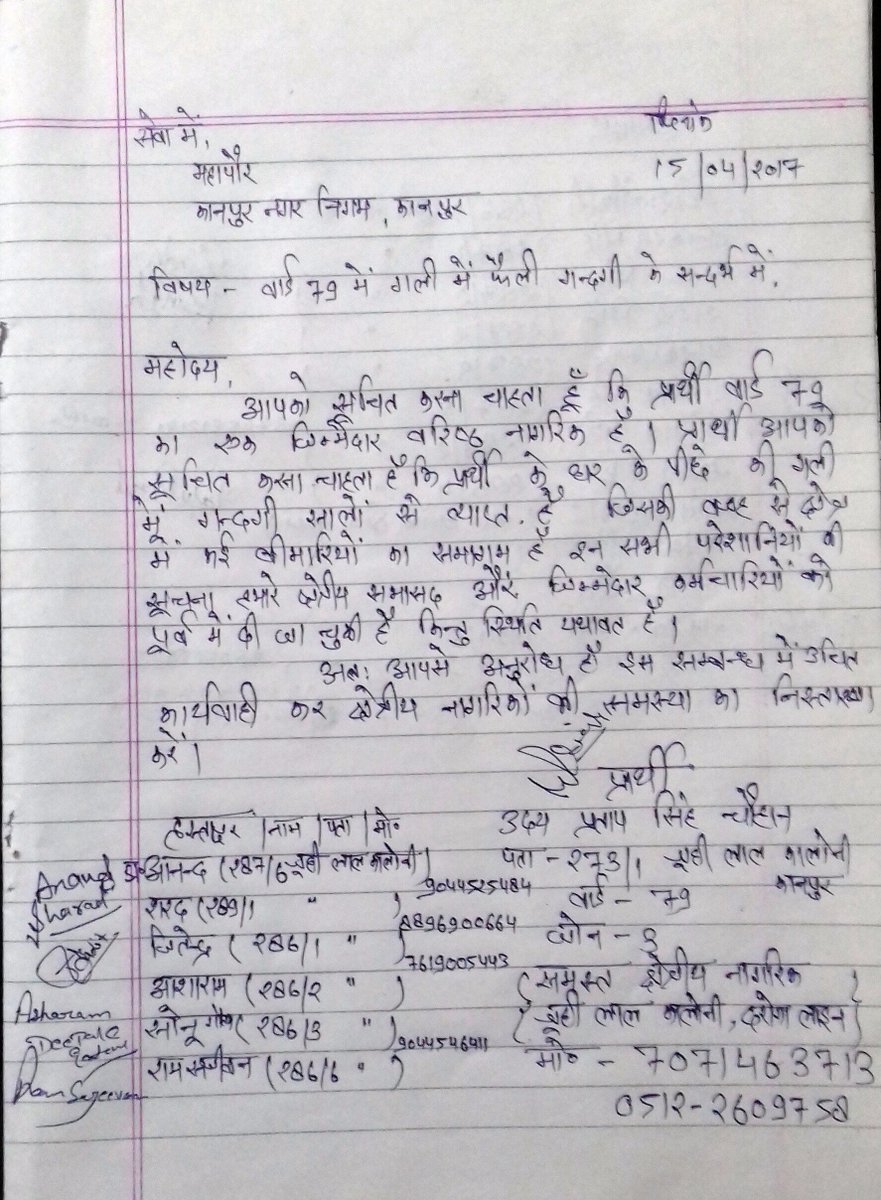 सेवा में,
दिनांक
महापौर
15/04/2017
कानपुर नगर निगम, कानपुर
विषय - वार्ड 79 में गली में फैली गन्दगी के सन्दर्भ में,
महोदय,
आपको सूचित करना चाहता हूँ कि प्रार्थी वार्ड 79
का एक जिम्मेदार वरिष्ठ नागरिक है। प्रार्थी आपको
सूचित करना चाहता है कि प्रार्थी के घर के पीछे की गली
में गन्दगी सालों से व्याप्त है जिसकी वजह से क्षेत्र
में कई बीमारियों का समागम है इन सभी परेशानियों की
सूचना हमारे क्षेत्रीय सभासद और जिम्मेदार कर्मचारियों को
पूर्व में दी जा चुकी है किन्तु स्थिति यथावत है।
अतः आपसे अनुरोध है इस सम्बन्ध में उचित
कार्यवाही कर क्षेत्रीय नागरिकों की समस्या का निस्तारण
करें।
प्रार्थी
हस्ताक्षर | नाम | पता | मो०
उदय प्रताप सिंह चौहान
Anand डा० आनन्द (287/6 जूही लाल कालोनी)
पता - 273/1 जूही लाल कालोनी
कानपुर
9044525484
Sharad शरद (289/1 " )
वार्ड - 79
8896900664
जितेन्द्र (286/1 " )
जोन - 3
7619005443
आशाराम (286/2 " )
(समस्त क्षेत्रीय नागरिक
Asharam सोनू गौतम (286/3 " )
जूही लाल कालोनी, दरोगा लाइन)
Deepak Gautam
रामसजीवन (286/6 " )
मो० - 7071463713
Ram Sajeevan
0512-2609758